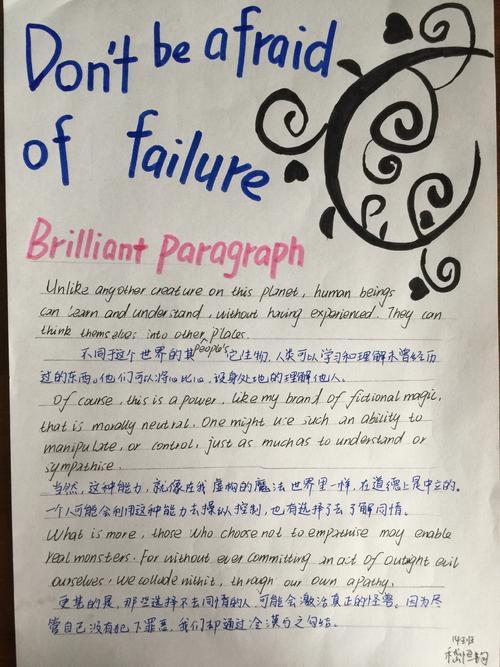 Don't be afraid
of failure
Brilliant paragraph
Unlike any other creature on this planet, human beings
can learn and understand, without having experienced. They can
think themselves into other people's places.
不同于这个世界的其它生物,人类可以学习和理解未曾经历
过的东西。他们可以将心比心,设身处地的理解他人。
Of course, this is a power, like my brand of fictional magic,
that is morally neutral. One might use such an ability to
manipulate, or control, just as much as to understand or
sympathise.
当然,这种能力,就像在我虚构的魔法世界里一样,在道德上是中立的。
一个人可能会利用这种能力去操纵控制,也有选择了去了解同情。
What is more, those who choose not to empathise may enable
real monsters. For without ever committing an act of outright evil
ourselves, we collude with it, through our own apathy.
更甚的是,那些选择不去同情的人,可能会激活真正的怪兽。因为尽
管自己没有犯下罪恶,我们却通过冷漠与之勾结。